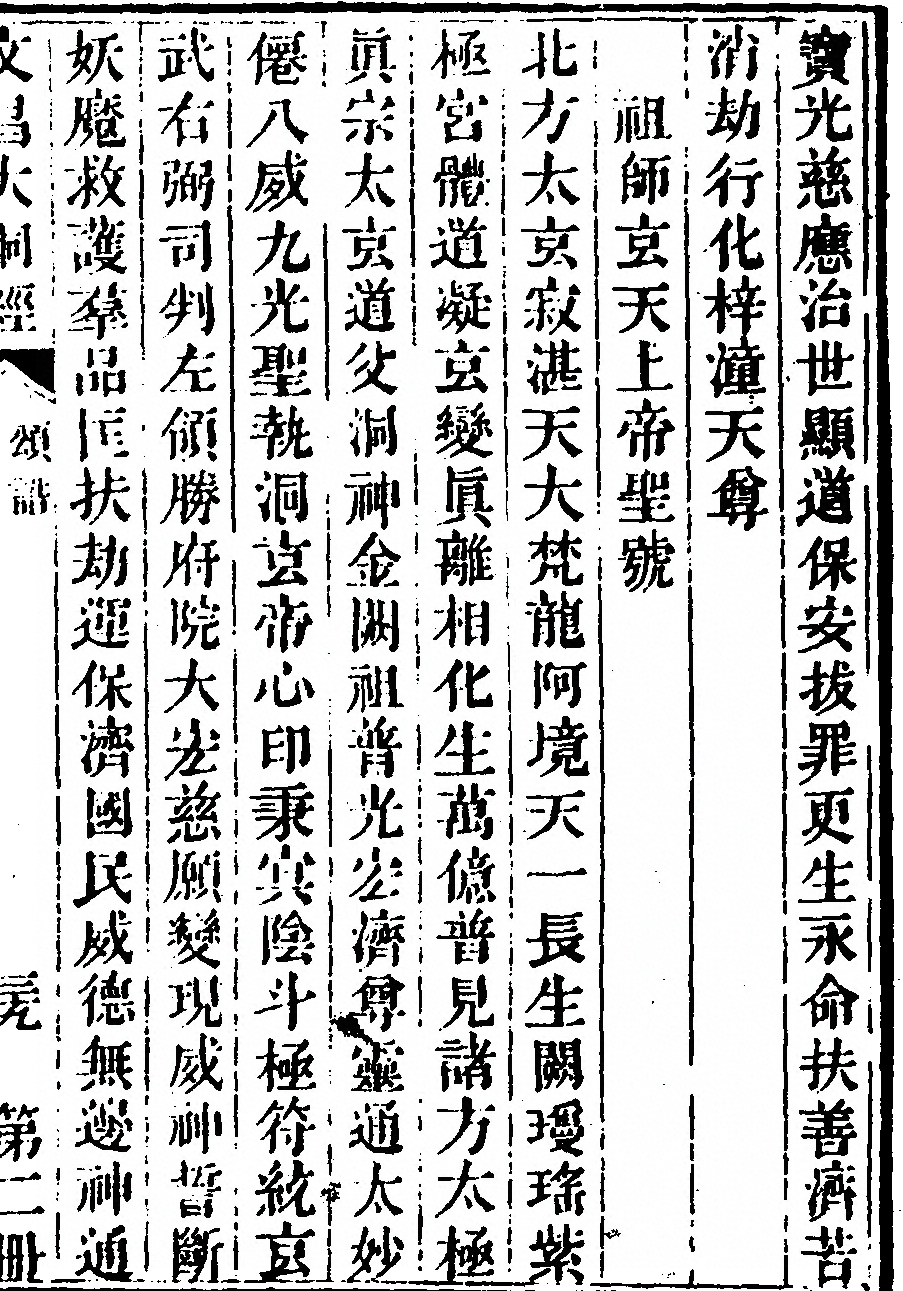 寶光慈應治世顯道保安拔罪更生永命扶善濟苦
消劫行化梓潼天尊
祖師玄天上帝聖號
北方太玄寂湛天大梵龍阿境天一長生闕瓊瑤紫
極宮體道凝玄變真離相化生萬億普見諸方太極
真宗太玄道父洞神金闕祖普光宏濟尊靈通太妙
僊八威九光聖執洞玄帝心印秉宾陰斗極符統玄
武右弼司判左領勝府院大宏慈願變現威神誓斷
妖魔救護羣品匡扶劫運保濟國民威德無邊神通
文昌大洞經 頌誥 第二冊